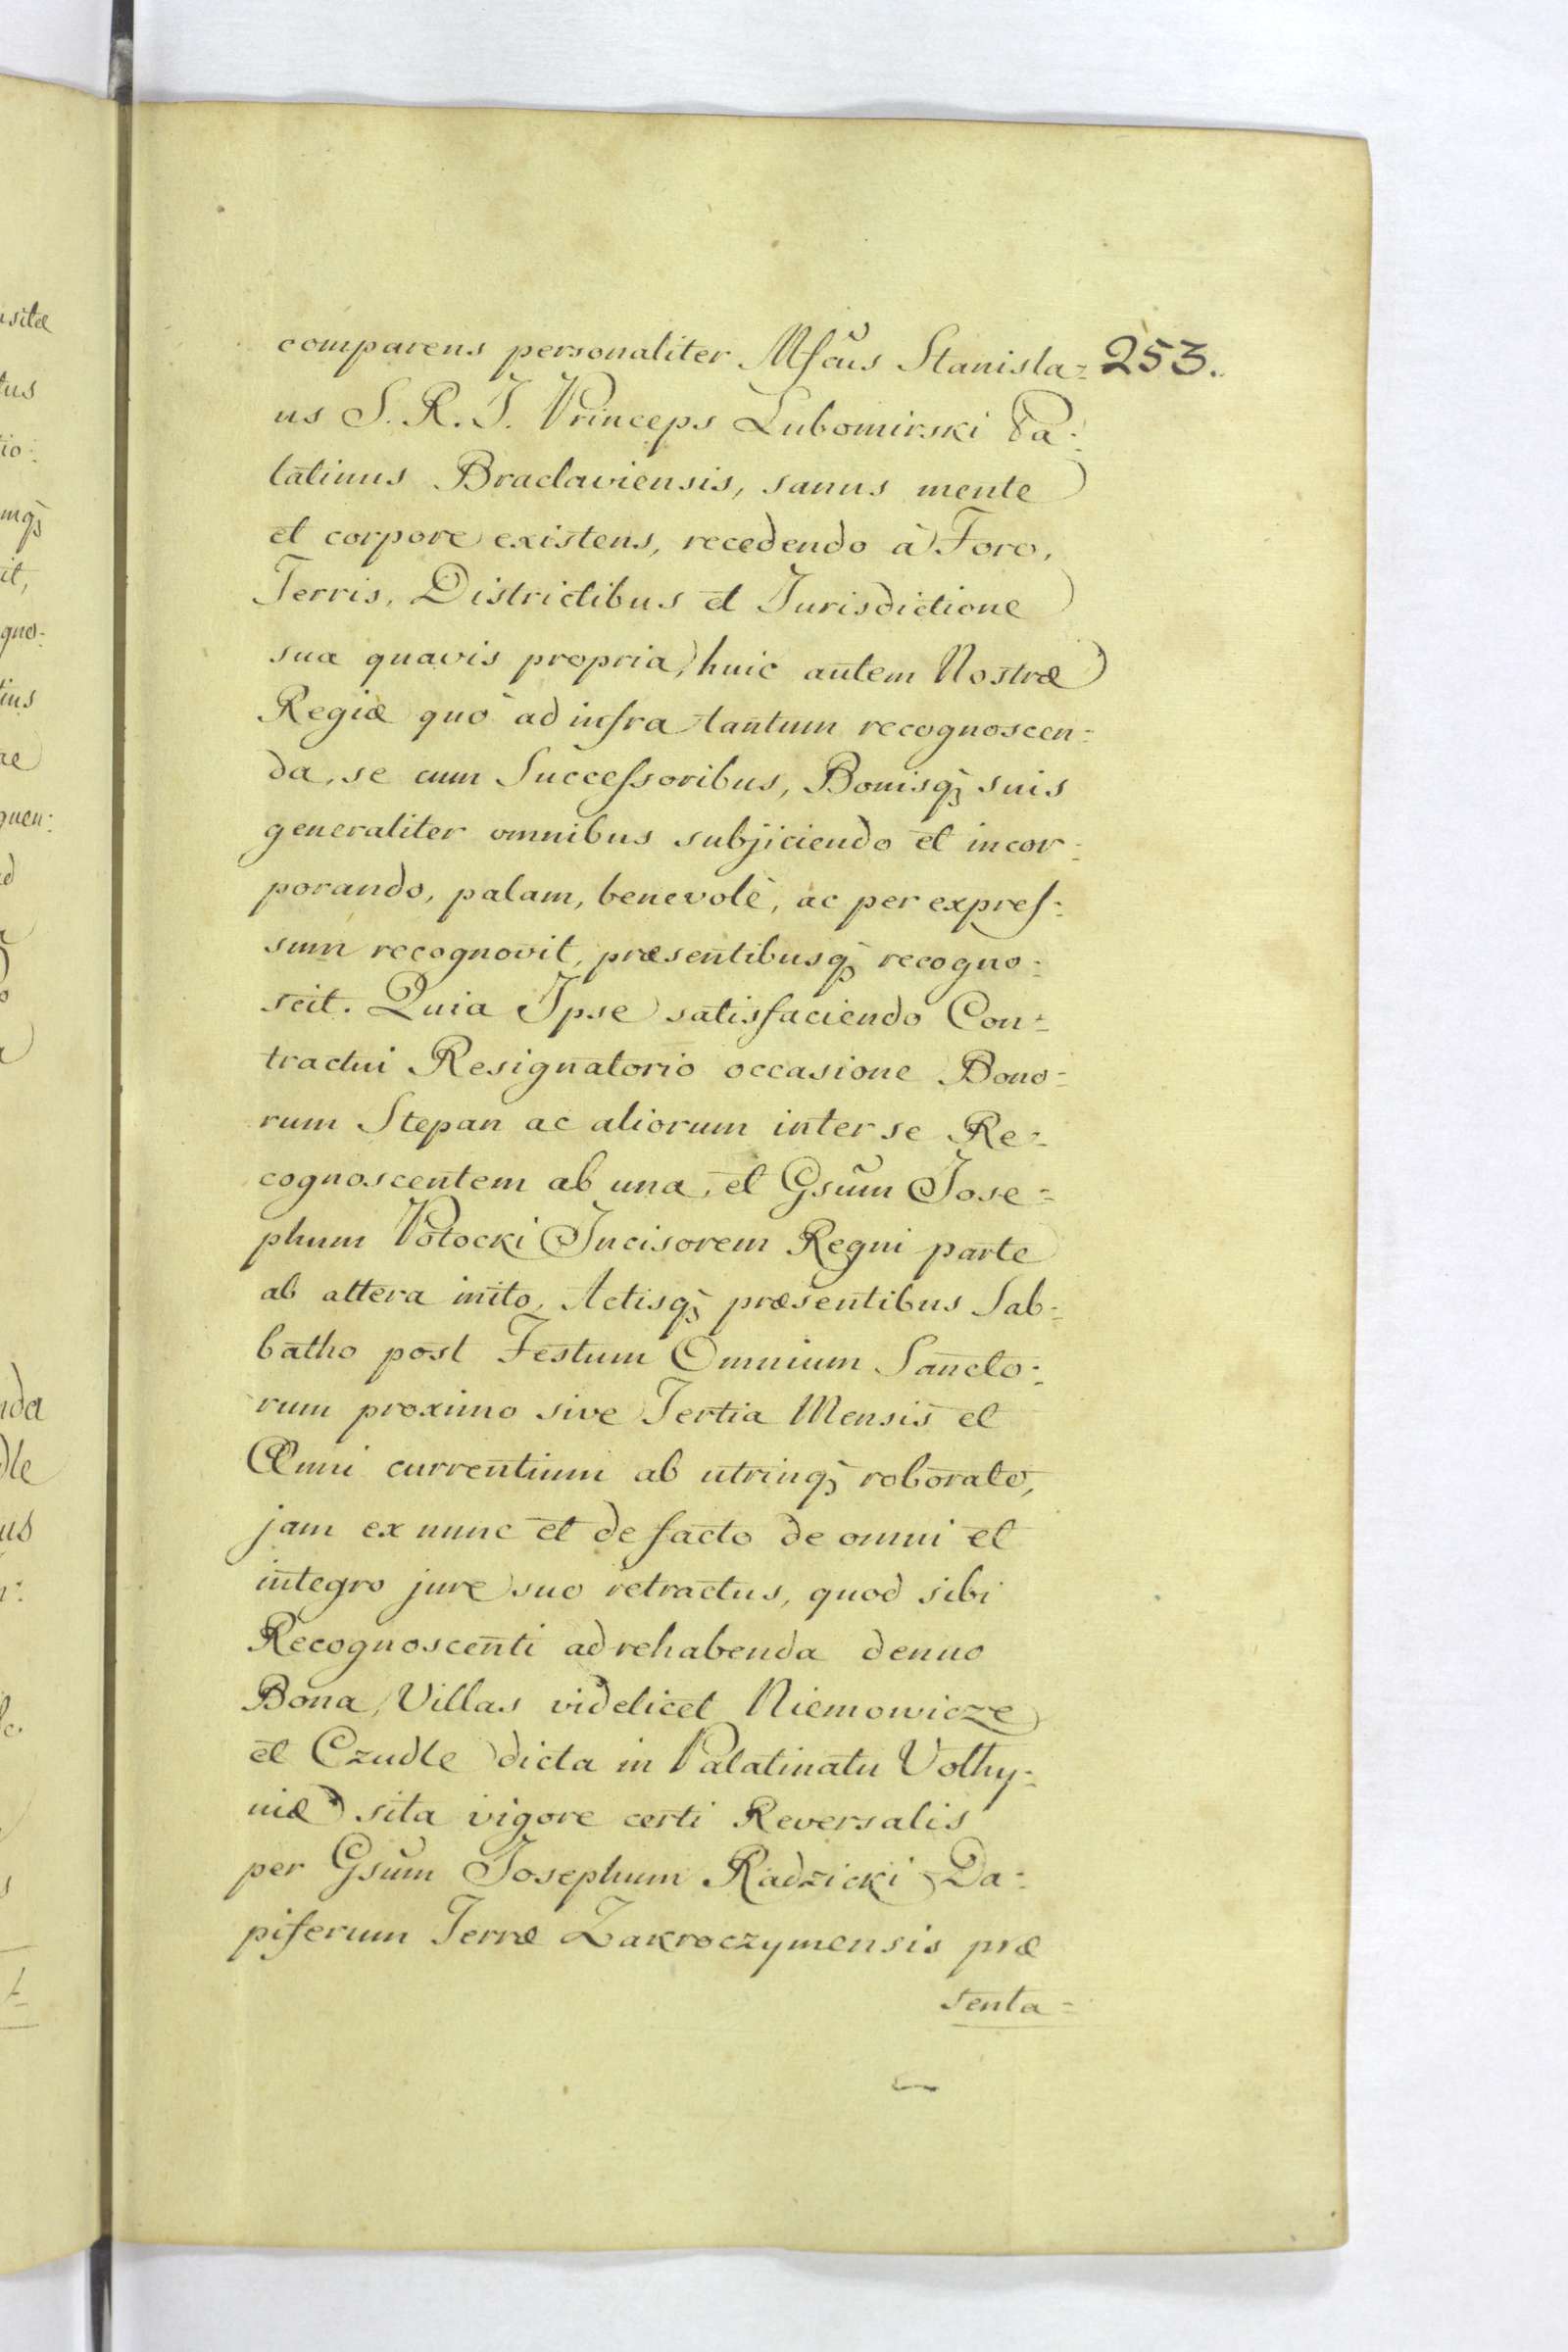 comparens personaliter Mfcus Stanisla= 253.
us S. R. J. Princeps Lubomirski Pa:
latinus Braclaviensis, sanus mente
et corpore existens, recedendo à Foro,
Terris, Districtibus et Jurisdictione
sua quavis propria, huic autem Nostræ
Regiæ quò ad infra tantum recognoscen:
da, se cum Succeſsoribus, Bonisq́; suis
generaliter omnibus subjiciendo et incor:
porando, palam, benevolè, ac per expreſ:
sum recognovit, præsentibusq́; recogno:
scit. Quia Ipse satisfaciendo Con:
tractui Resignatorio occasione Bono:
rum Stepan ac aliorum inter se Re:
cognoscentem ab una, et Gsum Jose=
phum Potocki Incisorem Regni parte
ab altera inito, Actisq́; præsentibus Sab:
batho post Festum Omnium Sancto:
rum proximo sive Tertia Mensis et
Anni currentium ab utrinq́; roborato,
jam ex nunc et de facto de omni et
integro jure suo retractus, quod sibi
Recognoscenti ad rehabenda denuo
Bona, Villas videlicet Niemowicze
et Czudle dicta in Palatinatu Volhy:
niæ sita vigore certi Reversalis
per Gsum Josephum Radzicki Da:
piferum Terræ Zakroczymensis præ
senta=
usitæ
tus
tio:
mq́;
it,
gno:
tius
ae
quen:
ad
nda
dle
us